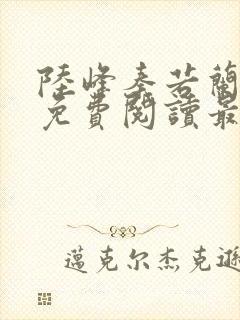 陸峰秦若蘭
免費閱讀最
邁克尔杰克遜